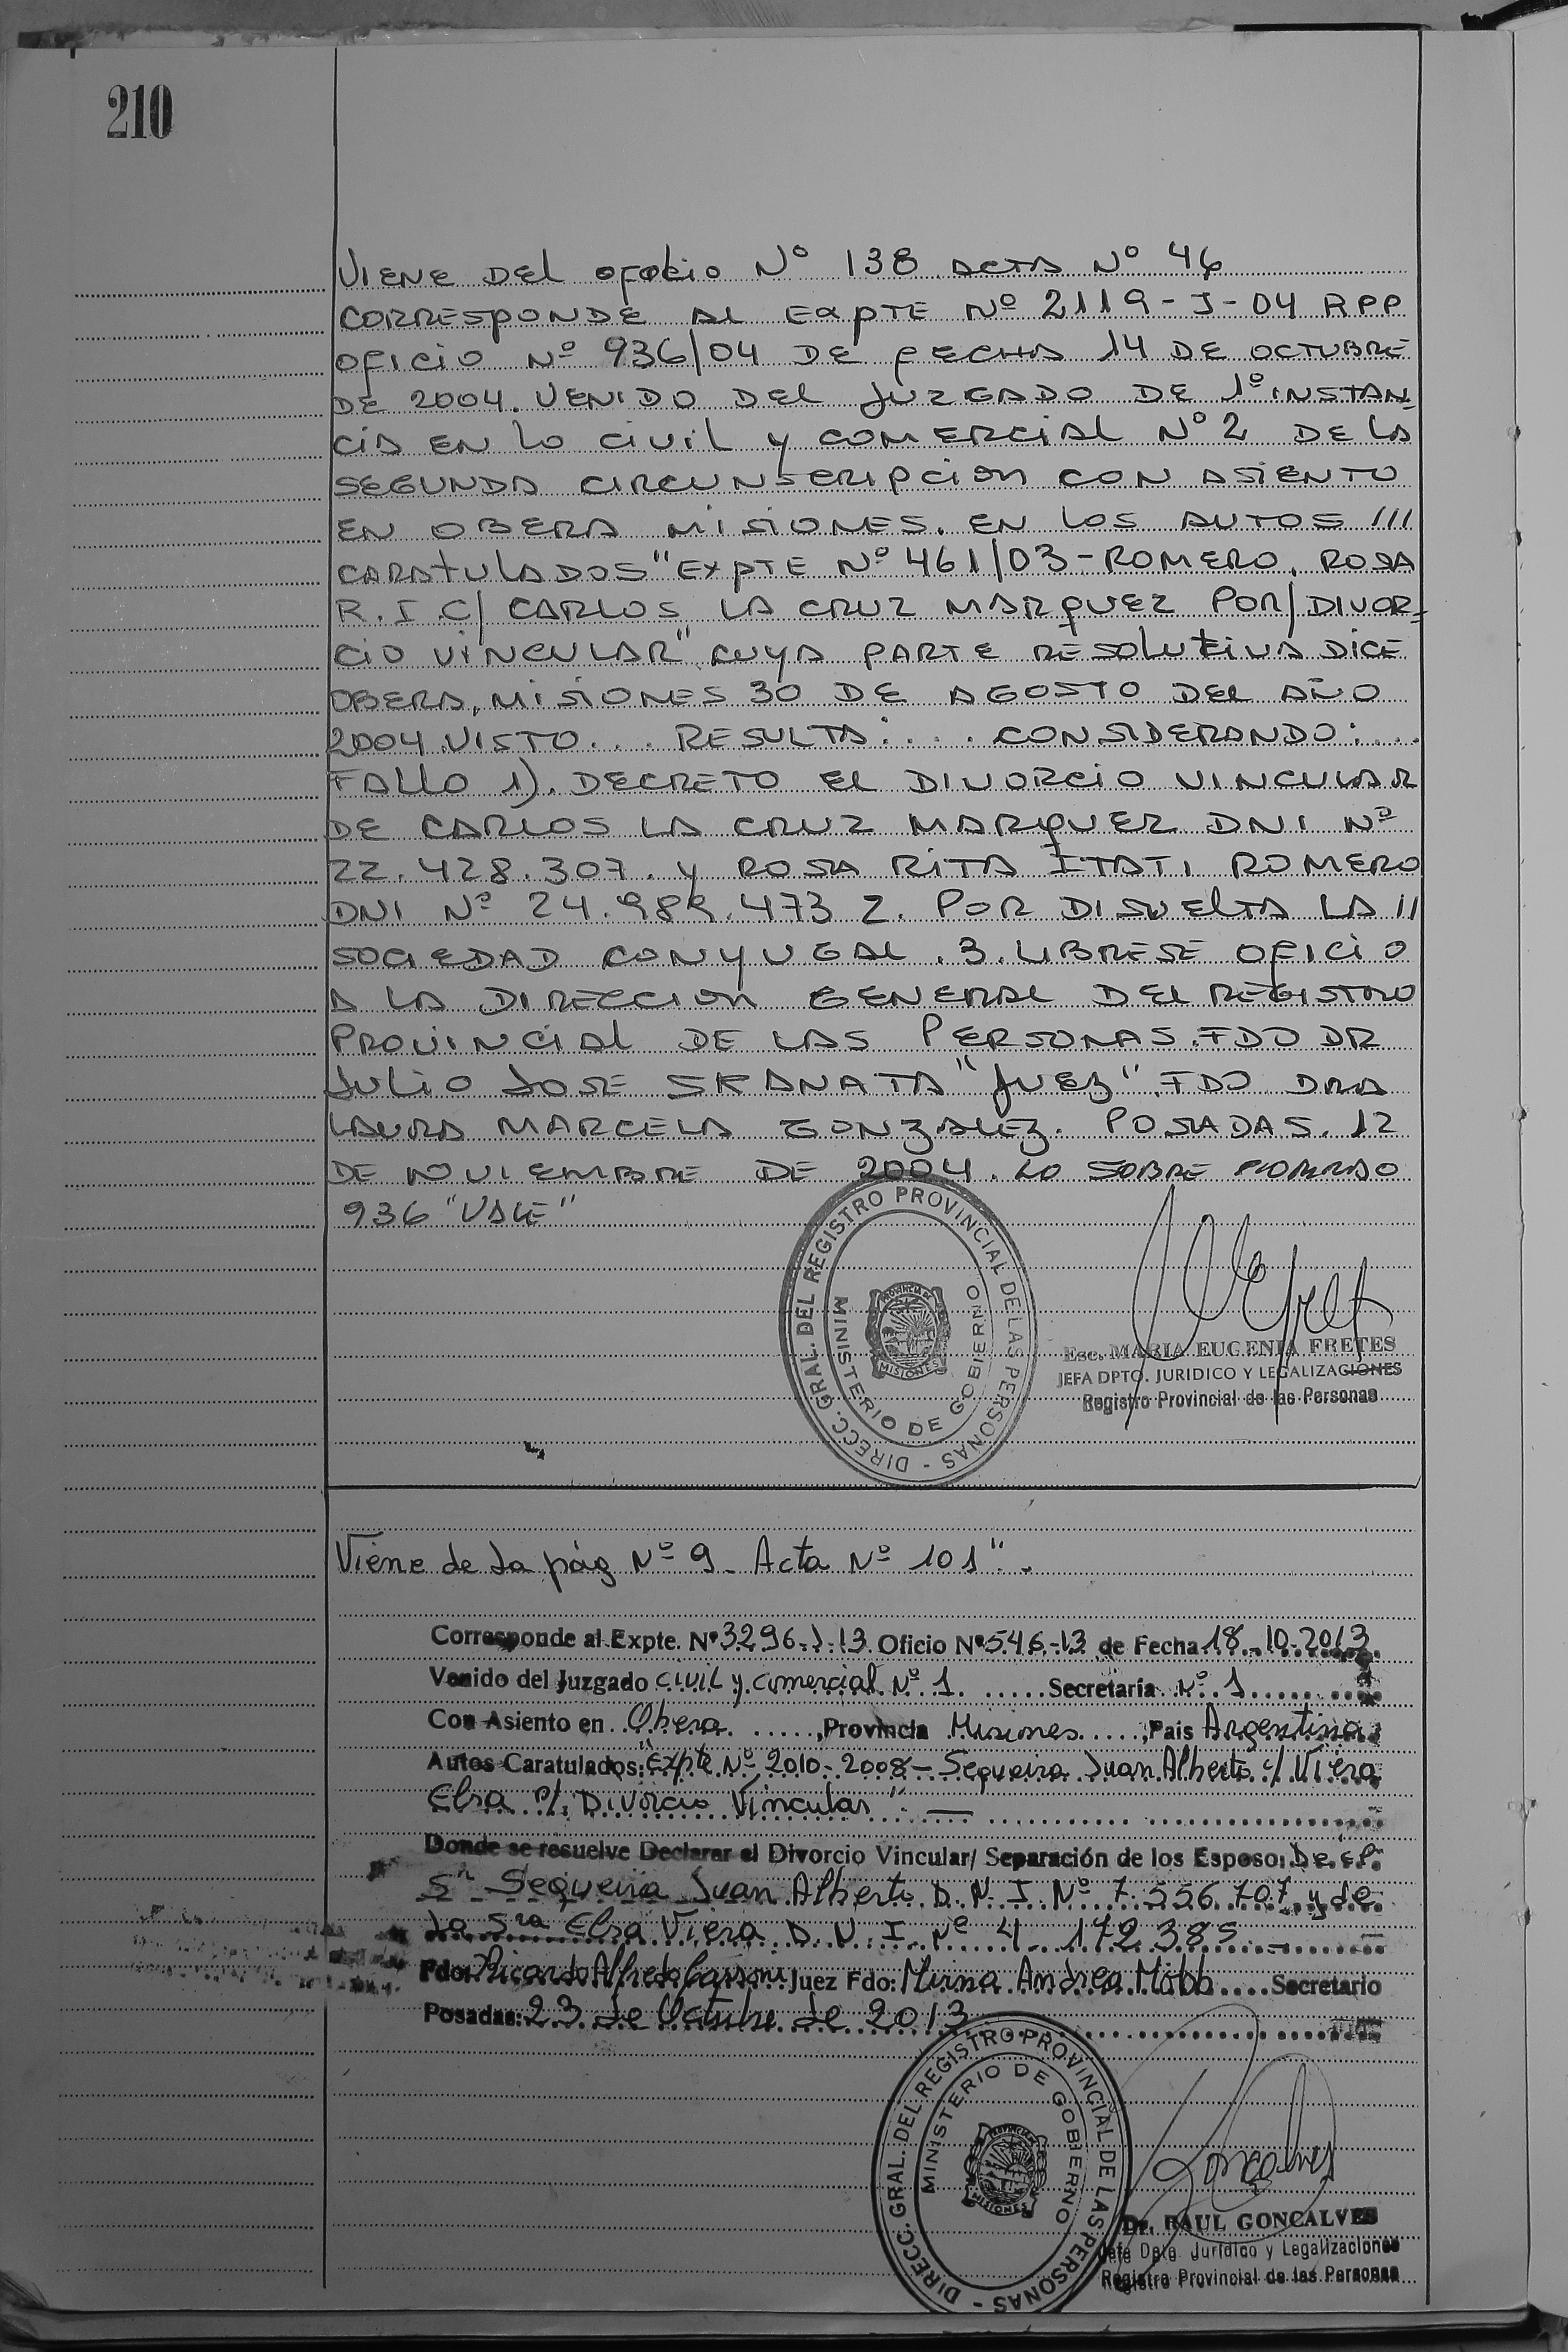 210
VIENE DEL OFOLIO Nº 138 ACTA Nº 46
CORRESPONDE AL EXPTE Nº 2119-J-04 RPP
OFICIO Nº 936/04 DE FECHA 14 DE OCTUBRE
DE 2004. VENIDO DEL JUZGADO DE 1º INSTAN-
CIA EN LO CIVIL Y COMERCIAL Nº 2 DE LA
SEGUNDA CIRCUNSCRIPCION CON ASIENTO
EN OBERA MISIONES. EN LOS AUTOS ///
CARATULADOS "EXPTE Nº 461/03-ROMERO, ROSA
R. I C/ CARLOS LA CRUZ MARQUEZ POR/ DIVOR-
CIO VINCULAR" CUYA PARTE RESOLUTIVA DICE
OBERA, MISIONES 30 DE AGOSTO DEL AÑO
2004. VISTO... RESULTA:.... CONSIDERANDO:...
FALLO 1). DECRETO EL DIVORCIO VINCULAR
DE CARLOS LA CRUZ MARQUEZ DNI Nº
22.428.307. Y ROSA RITA ITATI ROMERO
DNI Nº 24.989.473 2. POR DISUELTA LA //
SOCIEDAD CONYUGAL. 3. LIBRESE OFICIO
A LA DIRECCION GENERAL DEL REGISTRO
PROVINCIAL DE LAS PERSONAS. FDO DR
JULIO JOSE SKANATA "JUEZ". FDO DRA
LAURA MARCELA GONZALEZ. POSADAS. 12
DE NOVIEMBRE DE 2004. LO SOBRE
936 "VALE"
DIRECC. GRAL. DEL REGISTRO PROVINCIAL DE LAS PERSONAS -
MINISTERIO DE GOBIERNO
PROVINCIA DE
MISIONES
Esc. MARIA EUGENIA FRETES
JEFA DPTO. JURIDICO Y LEGALIZACIONES
Registro Provincial de las Personas
Viene de la pág Nº 9 - Acta Nº 101".
Corresponde al Expte. Nº 3296-J-13 Oficio Nº 546-13 de Fecha 18-10-2013
Venido del Juzgado Civil y Comercial Nº 1 Secretaría Nº 1
Con Asiento en Obera, Provincia Misiones, Pais Argentina
Autos Caratulados: "Expte Nº 2010-2008 - Sequeira Juan Alberto c/ Viera
Elsa s/ Divorcio Vincular". —
Donde se resuelve Declarar el Divorcio Vincular/ Separación de los Esposo: De el
Sr Sequeira Juan Alberto D.N.I. Nº 7.556.707 y de
la Sra Elsa Viera D.N.I. Nº 4.172.385 -
Fdo: Ricardo Alfredo Juez Fdo: Mirna Andrea Secretario
Posadas: 23 de Octubre de 2013
DIRECC. GRAL. DEL REGISTRO PROVINCIAL DE LAS PERSONAS -
MINISTERIO DE GOBIERNO
MISIONES
Goncalves
Dr. RAUL GONCALVES
Jefe Dpto. Jurídico y Legalizaciones
Registro Provincial de las Personas